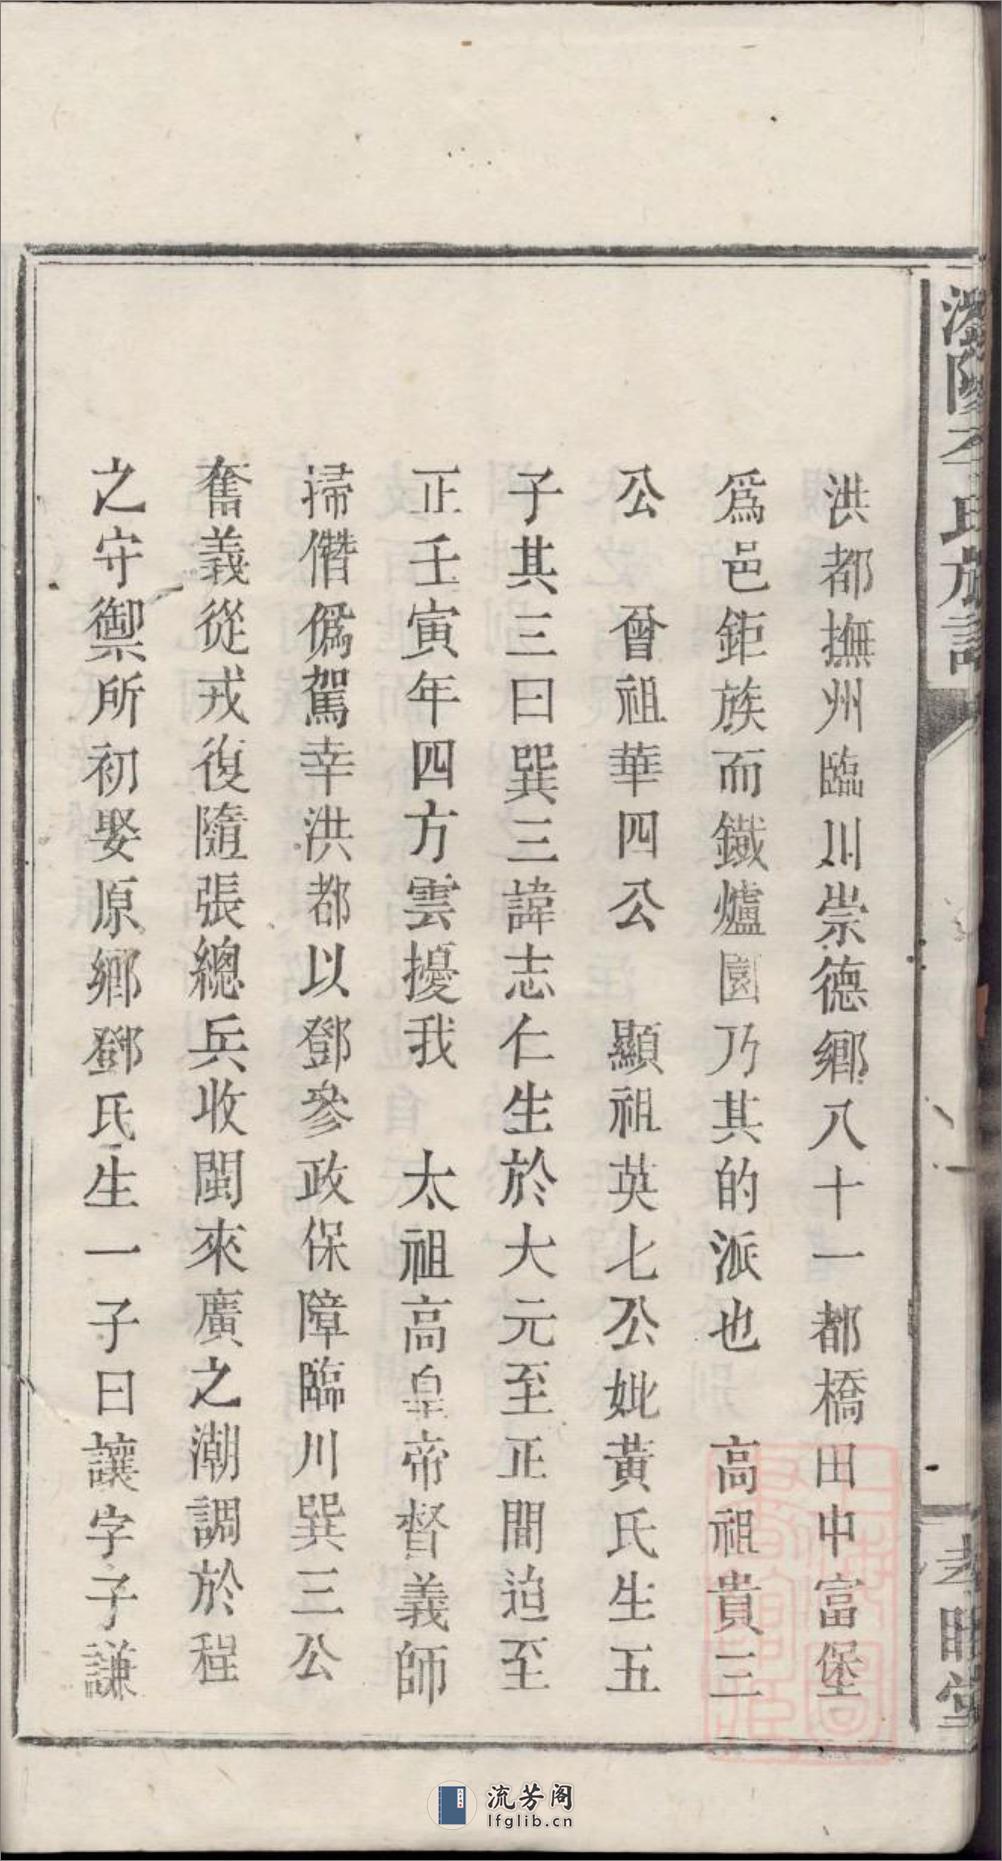 洪都撫州臨川崇德鄉八十一都橋田中富堡
爲邑鉅族而鐵爐園乃其的派也　高祖貴三
公　曾祖華四公　顯祖英七公妣黃氏生五
子其三曰巽三諱志仁生於大元至正間迫至
正壬寅年四方雲擾我　太祖高皇帝督義師
掃僭僞駕幸洪都以鄧參政保障臨川巽三公
奮義從戎復隨張總兵收閩來廣之潮調於程
之守禦所初娶原鄉鄧氏生一子曰讓字子謙
李氏族譜
堂
流芳阁
lfglib.cn